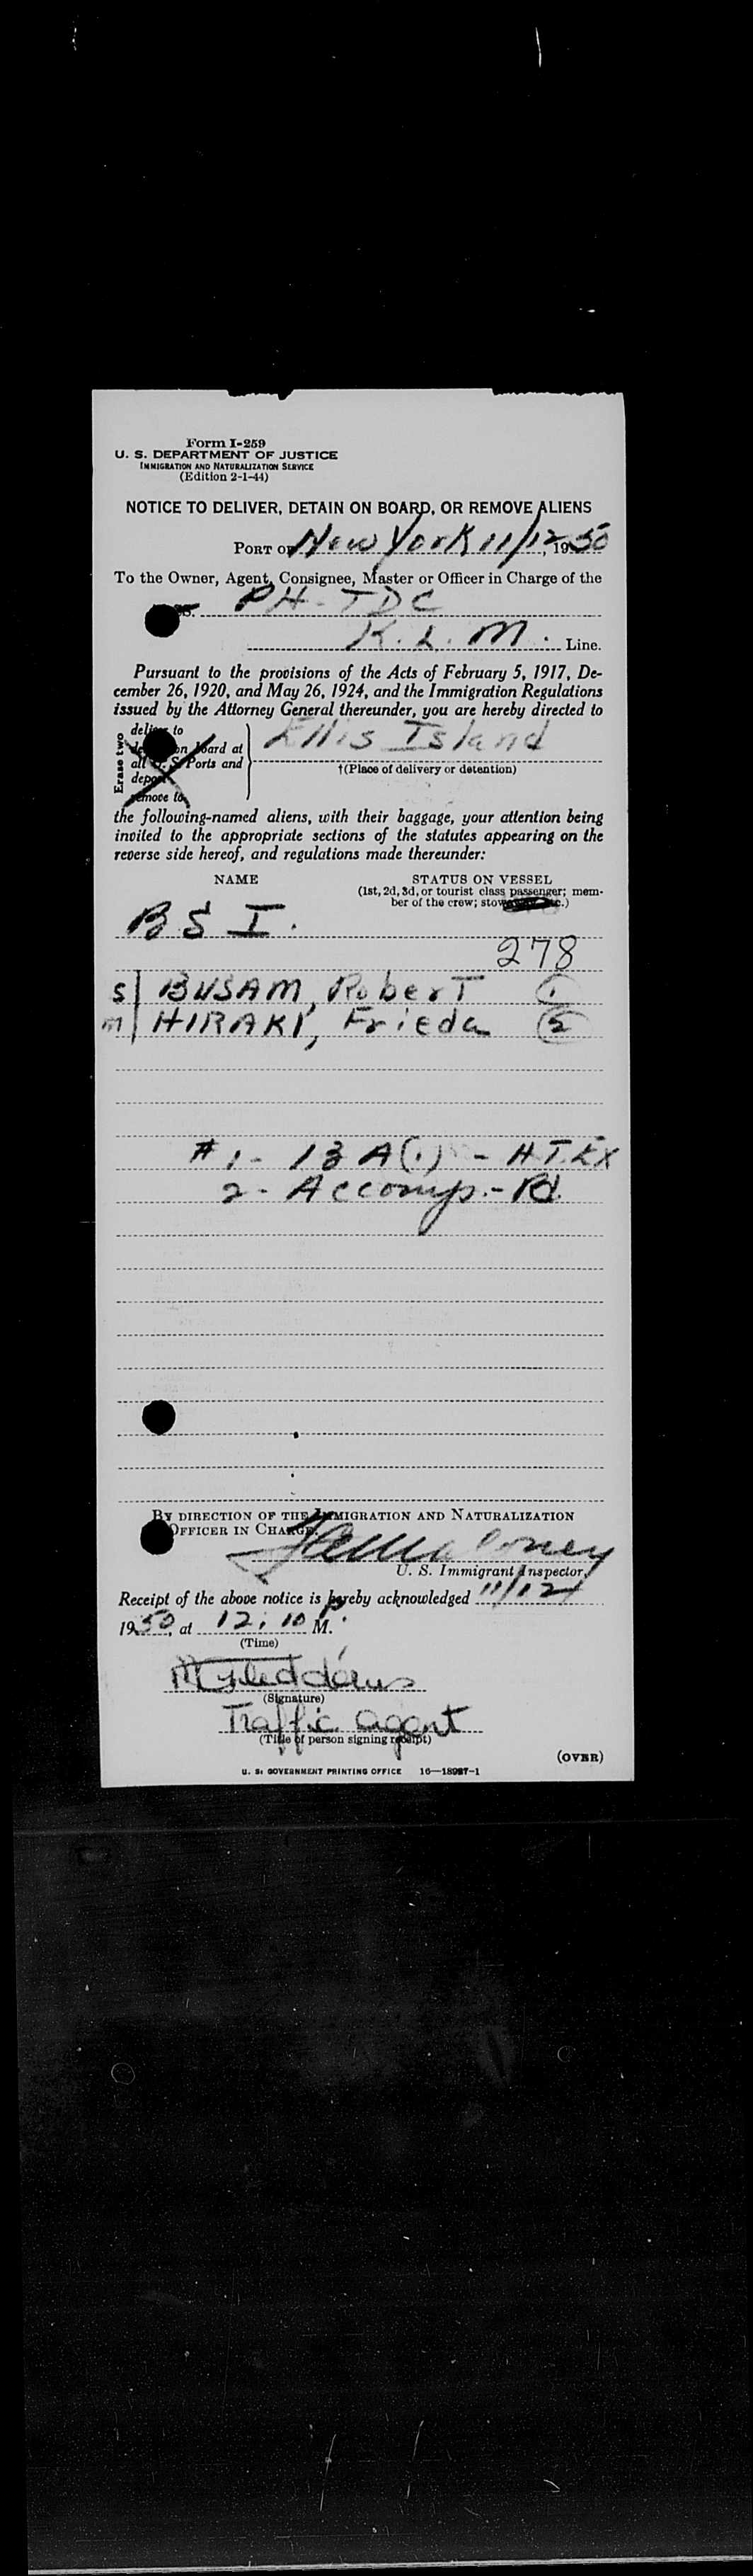 Form I-259
U. S. DEPARTMENT OF JUSTICE
IMMIGRATION AND NATURALIZATION SERVICE
(Edition 2-1-44)
NOTICE TO DELIVER, DETAIN ON BOARD, OR REMOVE ALIENS
PORT OF New York 11/12, 1950
To the Owner, Agent, Consignee, Master or Officer in Charge of the
PH-TDC
K. L. M. Line.
Pursuant to the provisions of the Acts of February 5, 1917, De-
cember 26, 1920, and May 26, 1924, and the Immigration Regulations
issued by the Attorney General thereunder, you are hereby directed to
Erase two
deliver to
on board at
all U. S. Ports and
remove to
Ellis Island
†(Place of delivery or detention)
the following-named aliens, with their baggage, your attention being
invited to the appropriate sections of the statutes appearing on the
reverse side hereof, and regulations made thereunder:
NAME STATUS ON VESSEL
(1st, 2d, 3d, or tourist class passenger; mem-
ber of the crew;
B S I.
278
S BUSAM, Robert 1
M HIRAKY, Frieda 2
# 1 - 13 A(1) - HT. EX
2 - Accomp. - Rd.
BY DIRECTION OF THE IMMIGRATION AND NATURALIZATION
OFFICER IN CHARGE.
U. S. Immigrant Inspector.
Receipt of the above notice is hereby acknowledged 11/12
1950, at 12:10 P M.
(Time)
(Signature)
Traffic agent
(Title of person signing receipt)
(OVER)
U. S. GOVERNMENT PRINTING OFFICE 16—18987-1